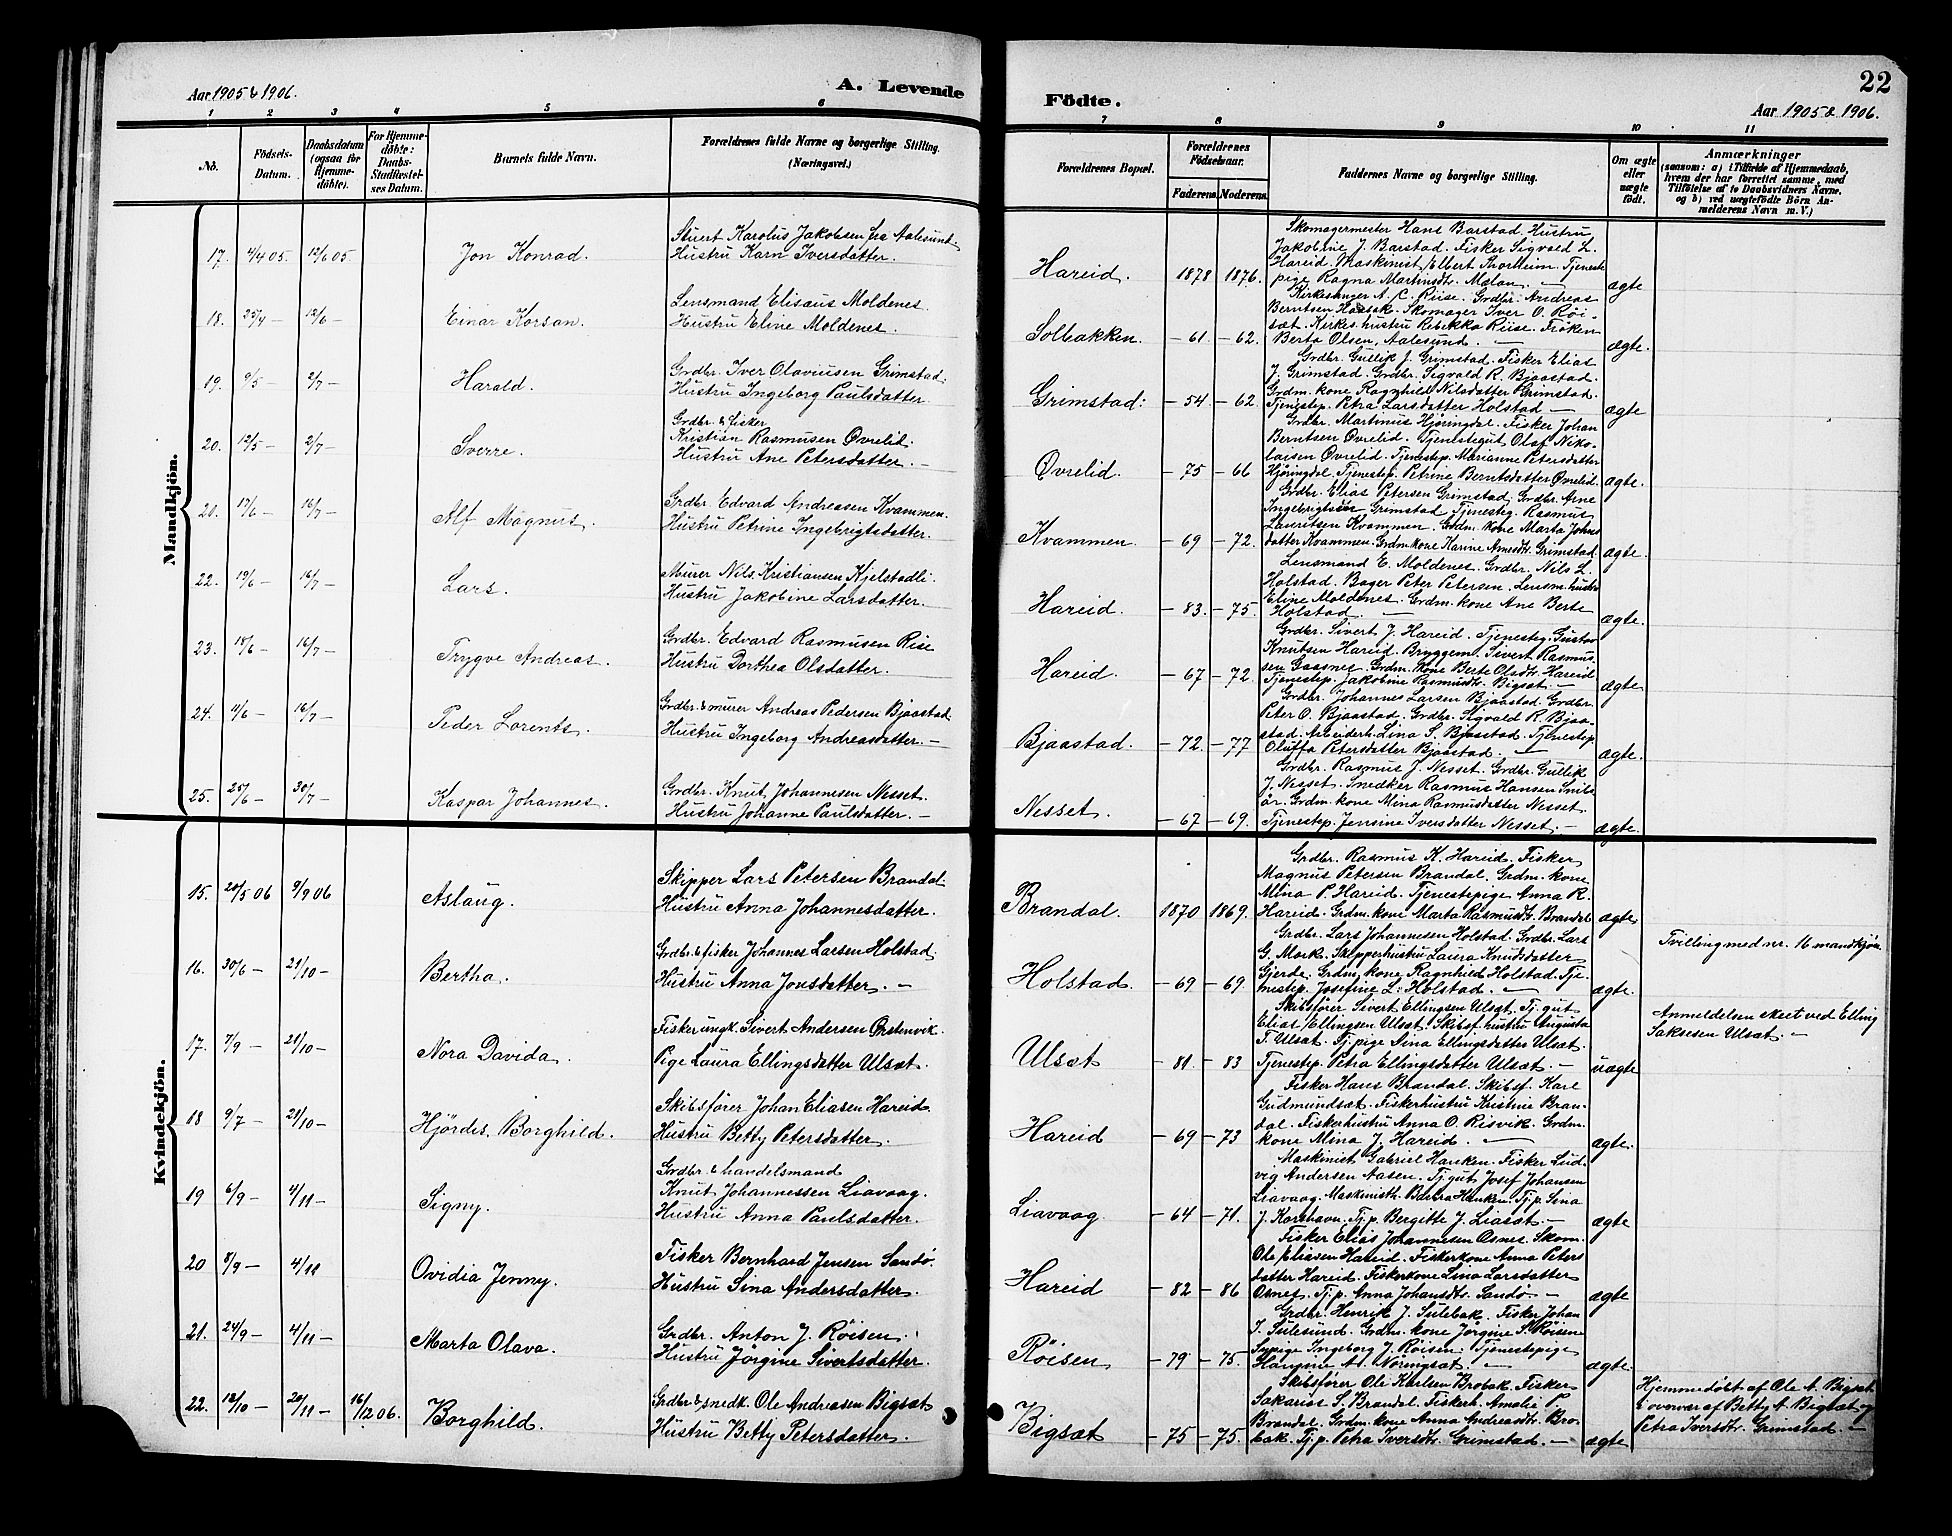 Aar 1905 & 1906.
A. Levende
Födte.
22
Aar 1905 & 1906.
1 2 3 4 5 6 7 8 9 10 11
No.
Födsels-
Datum.
Daabsdatum
(ogsaa for
Hjemme-
döbte).
For Hjemme-
döbte:
Daabs-
Stadfæstel-
ses Datum.
Barnets fulde Navn.
Forældrenes fulde Navne og borgerlige Stilling.
(Næringsvei.)
Forældrenes Bopæl.
Forældrenes
Födselsaar.
Faderens. Moderens.
Faddernes Navne og borgerlige Stilling.
Om ægte
eller
uægte
födt.
Anmærkninger
(saasom: a) i Tilfælde af Hjemmedaab,
hvem der har forrettet samme, med
Tilföielse af to Daabsvidners Navne,
og b) ved uægtefödte Börn An-
melderens Navn m. V.)
Mandkjön.
17. 4/4 05 12/6 05 Jon Konrad.
Stuert Karolus Jakobsen fra Aalesund
Hustru Karn Iversdatter.
Hareid. 1878 1876.
Skomagermester Hans Barstad. Hustru
Jakobine J. Barstad. Fisker Sigvald L.
Hareid. Maskinist Elbert Thorheim. Tjeneste
pige Ragna Martinsdtr. Melan —
ægte
18. 25/4 — 12/6 — Einar Korsan.
Lensmand Elisæus Moldenes
Hustru Eline Moldenes.
Solbakken. — 61 — 62.
Kirkesanger A. C. Riise. Grdbr. Andreas
Berntsen Haasak. Skomager Iver O. Röi-
sæt. Kirkes. hustru Rebekka Riise. Fröken
Berta Olsen, Aalesund. —
ægte.
19. 9/5 — 2/7 — Harald.
Grdbr. Iver Olaviusen Grimstad
Hustru Ingeborg Paulsdatter
Grimstad. — 54. — 62.
Grdbr. Gullik J. Grimstad. Fisker Elias
J. Grimstad. Grdbr. Sigvald R. Bjaastad.
Grdm. kone Ragnhild Nilsdatter Grimstad.
Tjenestep. Petra Larsdatter Holstad —
ægte
20. 12/5 — 2/7 — Sverre.
Grdbr. & fisker
Kristian Rasmusen Øvrelid.
Hustru Ane Petersdatter. —
Øvrelid. — 75 — 66
Grdbr. Martinus Hjöringdal. Fisker Johan
Berntsen Øvrelid. Tjenestegut Olaf Niko-
laisen Øvrelid. Tjenestep. Marianne Petersdatter
Hjöringdal. Tjenestep. Petrine Berntsdatter Øvrelid.
ægte.
17/6 — 16/7 — Alf Magnus.
Grdbr. Edvard Andreasen Kvammen.
Hustru Petrine Ingebrigtsdatter.
Kvammen — 69 — 72.
Grdbr. Elias Petersen Grimstad. Grdbr. Arne
Ingebrigtsen Grimstad. Tjenesteg. Rasmus
Lauritsen Kvammen. Grdm. kone Marta Johns
datter Kvammen. Grdm. kone Karine Arnesdtr. Grimstad
ægte
22. 19/6 — 16/7 — Lars.
Murer Nils Kristiansen Kjelstadli
Hustru Jakobine Larsdatter.
Hareid. — 83. — 75.
Lensmand E. Moldenes. Grdbr. Nils L.
Holstad. Bager Peter Petersen. Lensm. hustru
Eline Moldenes. Grdm. kone Ane Berte
Holstad —
ægte
23. 18/6 — 16/7 — Trygve Andreas.
Grdbr. Edvard Rasmusen Rise
Hustru Dorthea Olsdatter.
Hareid. — 67 — 72
Grdbr. Sivert J. Hareid. Tjenesteg. Gustav
Knutsen Hareid. Bryggem. Sivert Rasmus
sen Gaasnes. Grdm. kone Berte Olsdtr. Hareid
Tjenestep. Jakobine Rasmusdtr. Bigsæt —
ægte
24. 11/6 — 16/7 — Peder Lorents.
Grdbr. & murer Andreas Pedersen Bjaastad
Hustru Ingeborg Andreasdatter. —
Bjaastad. — 72. — 77
Grdbr. Johannes Larsen Bjaastad. Grdbr.
Peter O. Bjaastad. Grdbr. Sigvald R. Bjaa-
stad. Arbeiderh. Lina S. Bjaastad. Tjenestep.
Oluffa Petersdatter Bjaastad. —
ægte.
25. 25/6 — 30/7 — Kaspar Johannes.
Grdbr. Knut Johannesen Nesset.
Hustru Johanne Paulsdatter. —
Nesset. — 67 — 69.
Grdbr. Rasmus J. Nesset. Grdbr. Gullik
J. Nesset. Snedker Rasmus Hansen
Grdm. kone Mina Rasmusdatter Nesset
Tjenestep. Jensine Iversdatter Nesset. —
ægte.
Kvindekjön.
15. 20/5 06 9/9 06 Aslaug.
Skipper Lars Petersen Brandal
Hustru Anna Johannesdatter.
Brandal. 1870 1869.
Grdbr. Rasmus K. Hareid. Fisker
Magnus Petersen Brandal. Grdm. kone
Mina P. Hareid. Tjenestepige Anna R.
Hareid. Grdm. kone Marta Rasmusdtr. Brandal
ægte
16. 30/6 — 21/10 — Bertha.
Grdbr. & fisker Johannes Larsen Holstad
Hustru Anna Jonsdatter. —
Holstad. — 69 — 69
Grdbr. Lars Johannesen Holstad. Grdbr. Lars
G. Mork. Skipperhustru Laura Knudsdatter
Gjerde. Grdm. kone Ragnhild Holstad. Tje-
nestep. Josefine L. Holstad. —
ægte.
Tvilling med nr. 16 mandkjön
17. 7/9 — 21/10 — Nora Davida.
Fisker ungk. Sivert Andersen Ørstenvik.
Pige Laura Ellingsdatter Ulsæt.
Ulsæt — 81 — 83
Skibsförer Sivert Ellingsen Ulsæt. Tj. gut
Elias Ellingsen Ulsæt. Skibsf. hustru Augusta
T. Ulsæt. Tj. pige Sina Ellingsdatter Ulsæt.
Tjenestep. Petra Ellingsdatter Ulsæt. —
uægte
Anmeldelsen skeet ved Elling
Saksesen Ulsæt. —
18 9/7 — 21/10 — Hjördis Borghild.
Skibsförer Johan Eliasen Hareid.
Hustru Betty Petersdatter.
Hareid — 69 — 73
Fisker Hans Brandal. Skibsf. Karl
Gudmundsæt. Fiskerhustru Kristine Bran-
dal. Fiskerhustru Anna O. Risvik. Grdm.
kone Alina J. Hareid. —
ægte.
19 6/9 — 4/11 — Signy.
Grdbr. & handelsmand
Knut Johannessen Liavaag.
Hustru Anna Paulsdatter.
Liavaag — 64 — 71.
Maskinist Gabriel Hanken. Fisker Lud-
vig Andersen Aasen. Tj. gut Josef Johansen
Liavaag. Maskinisth. Barbra Hanken. Tj. p. Sina
J. Korshavn. Tj. p. Bergitte J. Liasæt —
ægte
20 8/9 — 4/11 Ovidia Jenny.
Fisker Bernhard Jensen Sandö.
Hustru Sina Andersdatter.
Hareid — 82 — 86
Fisker Elias Johannesen Osnes. Skom.
Ole Eliasen Hareid. Fiskerkone Anna Peters
datter Hareid. Fiskerkone Lina Larsdatter
Osnes. Tj. p. Anna Johansdtr. Sandö. —
ægte
21. 24/9 — 4/11 — Marta Olava.
Grdbr. Anton J. Röisen.
Hustru Jörgine Sivertsdatter.
Röisen — 79 — 75.
Grdbr. Henrik J. Sulebak. Fisker Johan
I. Sulesund. Grdm. kone Jörgine S. Röisen
Sypige Ingeborg J. Röisen. Tjenestepige
Hansine A. Nöringsæt. —
ægte.
22. 18/10 — 20/11 — 16/12 06. Borghild.
Grdbr. & snedk. Ole Andreasen Bigsæt
Hustru Betty Petersdatter. —
Bigsæt — 75 — 75.
Skibsförer Ole Karlsen Brobak. Fisker
Sakarias S. Brandal. Fiskerh. Amalie P.
Brandal. Grdm. kone Anna Andreasdtr. Bro-
bak. Tj. p. Petra Iversdtr. Grimstad. —
ægte
Hjemmedöbt af Ole A. Bigsæt
i overvær af Betty A. Bigsæt og
Petra Iversdtr. Grimstad. —